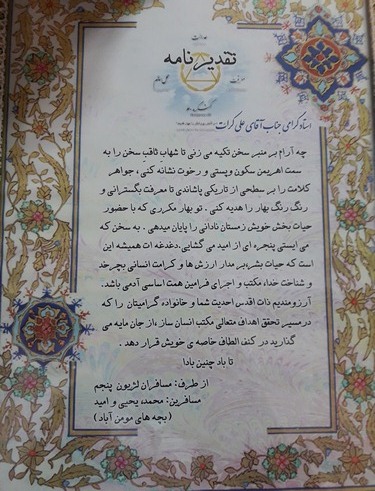 عدالت
تقدیرنامه
معرفت
عمل سالم
کنگره ۶۰
استاد گرامی جناب آقای علی کرات
چه آرام بر منبر سخن تکیه می زنی تا شهاب ثاقب سخن را به
سمت اهریمن سکون وپستی و رخوت نشانه کنی ، جواهر
کلامت را بر سطحی از تاریکی پاشاندی تا معرفت بگسترانی و
رنگ رنگ بهار را هدیه کنی . تو بهار مکرری که با حضور
حیات بخش خویش زمستان نادانی را پایان میدهی . به سخن که
می ایستی پنجره ای از امید می گشایی.دغدغه ات همیشه این
است که حیات بشر،بر مدار ارزش ها و کرامت انسانی بچرخد
و شناخت خدا، مکتب و اجرای فرامین همت اساسی آدمی باشد.
آرزومندیم ذات اقدس احدیت شما و خانواده گرامیتان را که
درمسیر تحقق اهداف متعالی مکتب انسان ساز ،از جان مایه می
گذارید در کنف الطاف خاصه ی خویش قرار دهد .
تا باد چنین بادا
از طرف: مسافران لژیون پنجم
مسافرین: محمد، یحیی و امید
(بچه های مومن آباد)